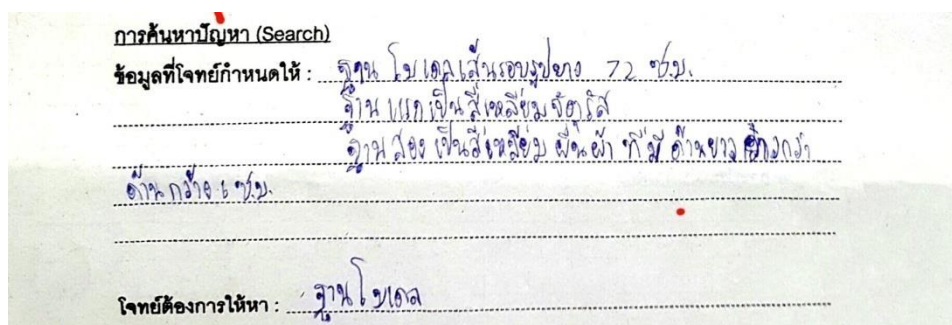 การค้นหาปัญหา (Search)
ข้อมูลที่โจทย์กำหนดให้ : ฐาน โมเดลเส้นรอบรูปยาว 72 ซ.ม.
ฐานแรกเป็นสี่เหลี่ยมจัตุรัส
ฐานสอง เป็นสี่เหลี่ยม ผืนผ้า ที่มี ด้านยาว กว่า
ด้านกว้าง ซ.ม.
โจทย์ต้องการให้หา : ฐานโมเดล